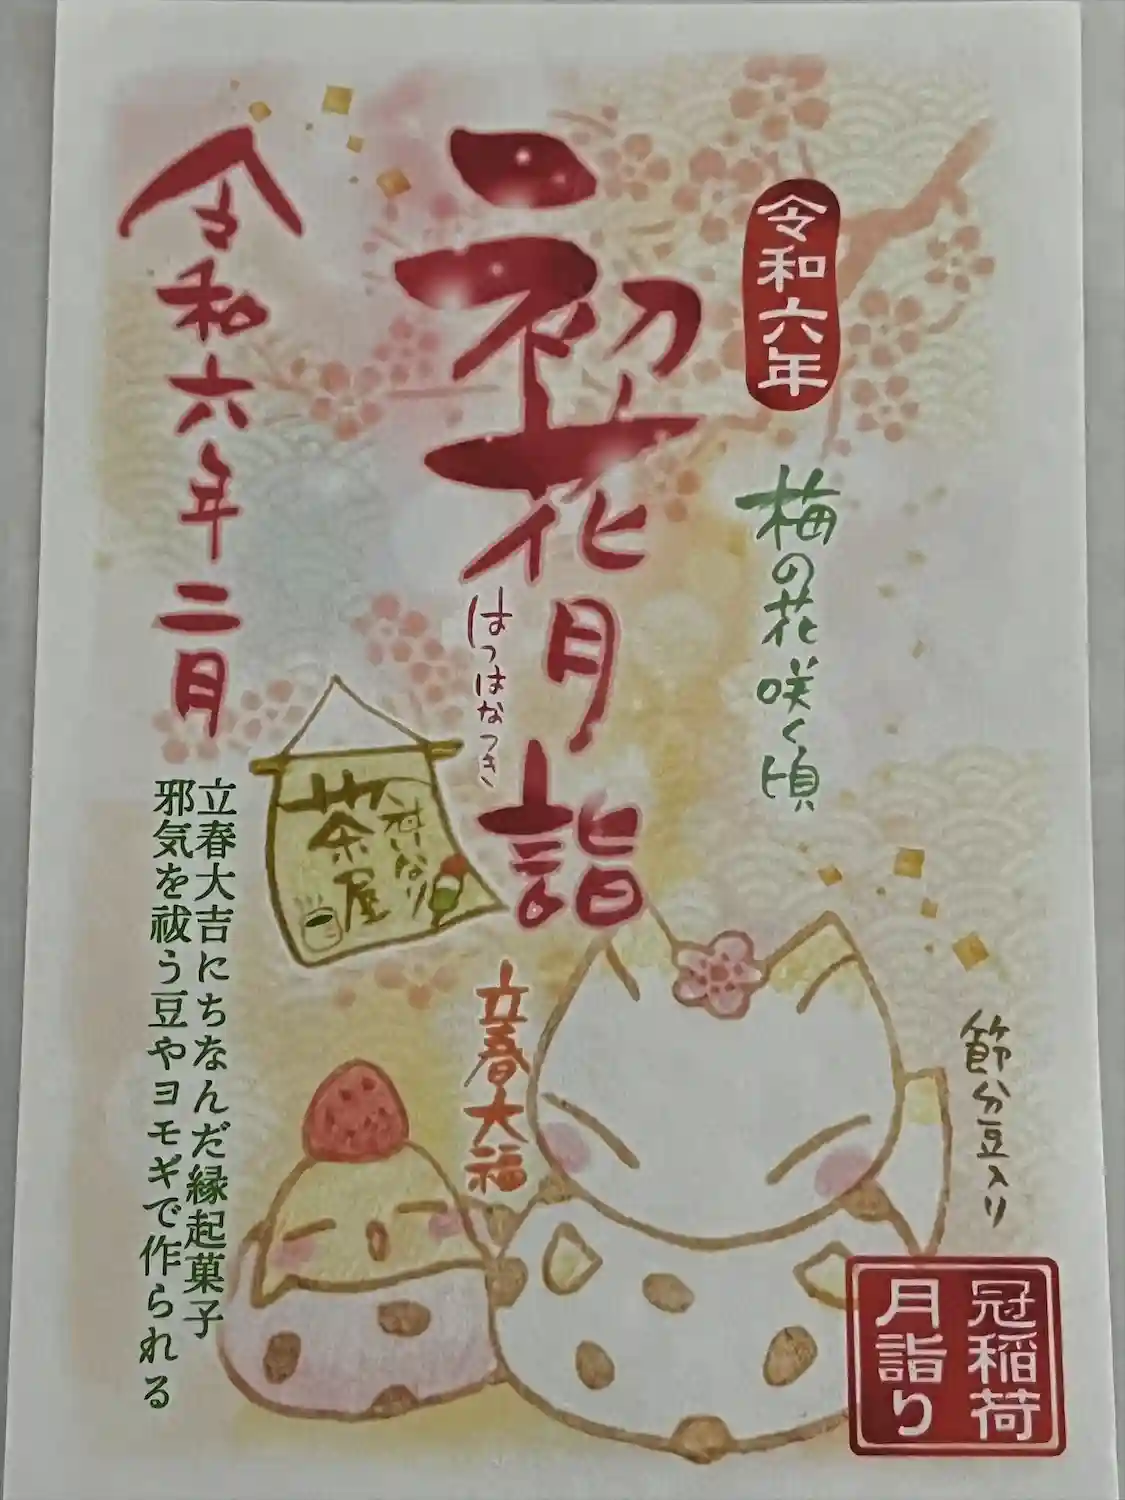 令和六年
梅の花咲く頃
初花月詣
はつはなつき
令和六年二月
神いなり
茶屋
節分豆入り
立春大福
立春大吉にちなんだ縁起菓子
邪気を祓う豆やヨモギで作られる
冠稲荷
月詣り